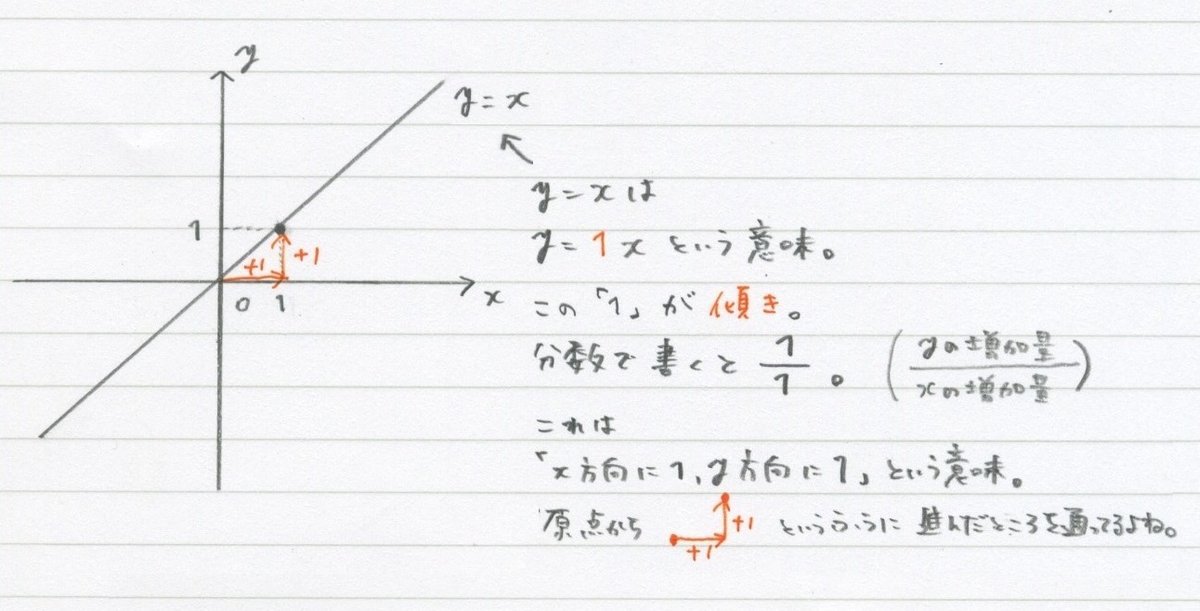 y
y = x
y = x は
1
y = 1x という意味。
+1
+1
0
1
x
この「1」が傾き。
分数で書くと 1/1。 (yの増加量/xの増加量)
これは
「x方向に1、y方向に1」という意味。
原点から +1 +1 というふうに進んだところを通ってるよね。